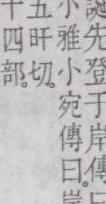 誕先登于岸傳曰
小雅小宛傳曰岸
五旰切
十四部